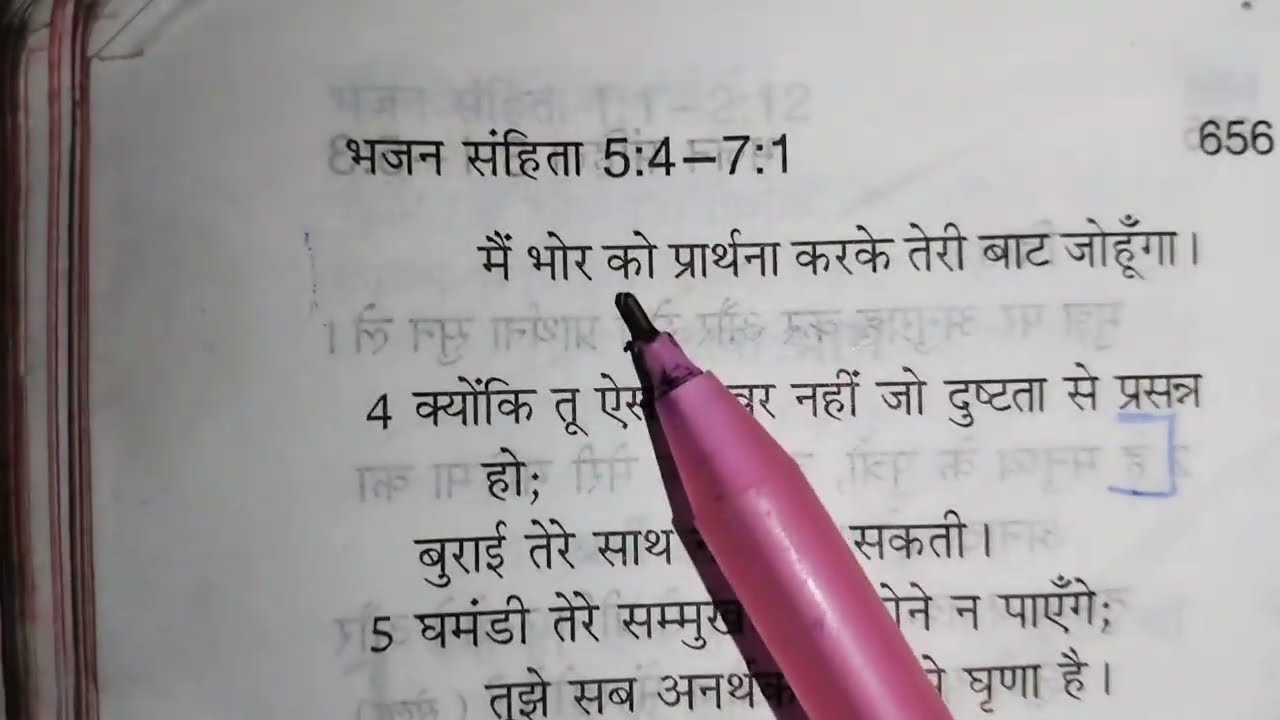 भजन संहिता 5:4–7:1 656
मैं भोर को प्रार्थना करके तेरी बाट जोहूँगा।
4 क्योंकि तू नहीं जो दुष्टता से प्रसन्न
हो;
बुराई तेरे साथ सकती।
5 घमंडी तेरे सम्मुख न पाएँगे;
तुझे सब घृणा है।